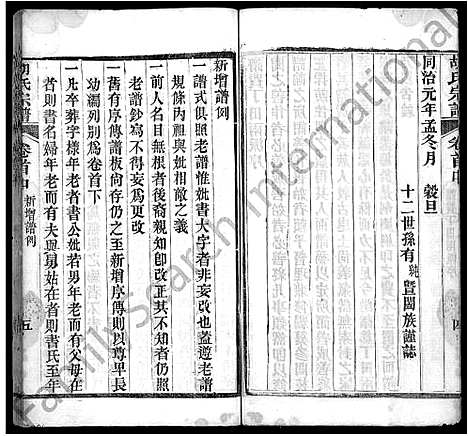 胡氏宗譜
卷首中
四
同治元年孟冬月 穀旦
十二世孫有純暨闔族謹誌
新增譜例
一譜式俱照老譜惟妣書大字者非妄改也蓋遵老譜
規條丙祖與妣相敵之義
一前人名目前後有如後裔親知卽改正其不知者仍照
老譜鈔寫不得妄爲更改
一舊有序傳譜板尙存仍之至新增序傳則以尊早長
幼編列別爲卷首下
一凡卒葬字樣年老者書公妣若男年老而有父母在
者則書名婦年老而有夫與舅姑在者則書氏至年
胡氏宗譜
卷首中
新增譜例
五
FamilySearch International